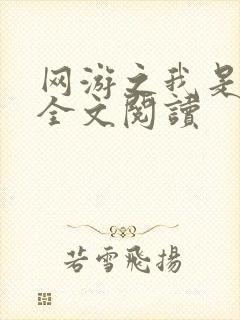 网游之我是
全文閱讀
若雪飛揚